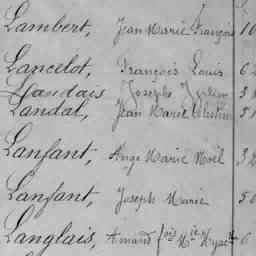 Lambert, Jean Marie François 10
Lancelot, François Louis 62
Landais Joseph
Landal, Jean Marie Célestin 51
Lanfant, Ange Marie Noël 32
Lanfant, Joseph Marie 50
Langlais, Amand fois Mie Hyacthe 6